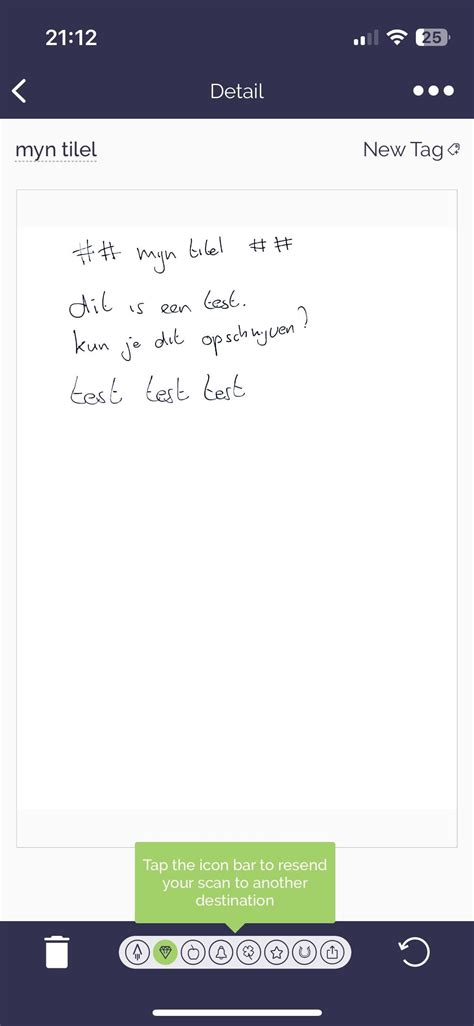 21:12
25
Detail
myn tilel
New Tag
## myn titel ##
dit is een test.
kun je dit opschrijven?
test test test
Tap the icon bar to resend
your scan to another
destination